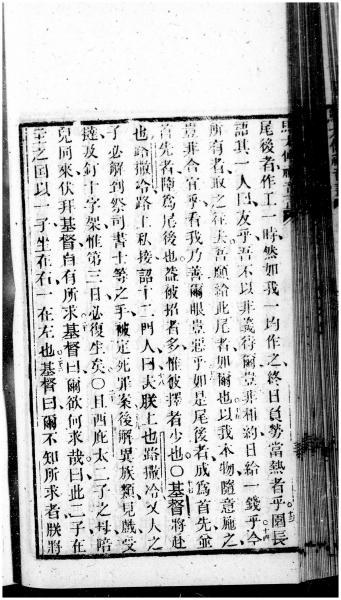 尾後者作工一時、然如我一均作之、終日負勞當熱者乎。園長
語其一人曰、友乎、吾不以非義待爾、豈非相約日給一錢乎。今
所有者取之往夫、吾願給此尾者如爾也。以我本物隨意施之、
豈非合宜乎、看我乃善、爾眼豈惡乎。如是尾後者成爲首先、並
首先者降爲尾後也、蓋被招者多、惟被擇者少也。〇基督將赴
也路撒冷、路上私接詔十二門人曰、夫朕上也路撒冷、又人之
子必解到祭司書士等之手、被定死罪案、後解異族類見戲受
撻、及釘十字架、惟第三日必復生矣。〇且西庇太二子之母、陪
兒同來伏拜基督、自有所求。基督曰、爾欲何求哉、曰、此二子在
主之國、以一子坐在右、一在左也。基督曰、爾不知所求者、朕將